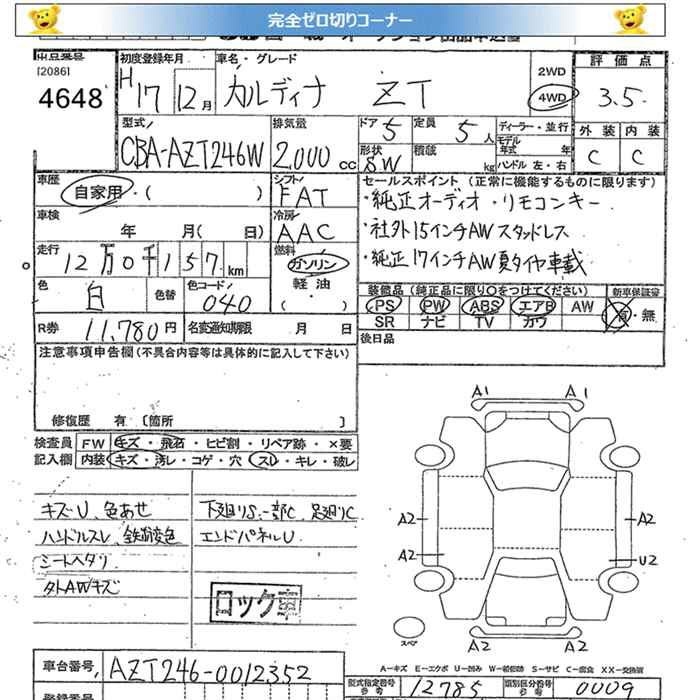 完全ゼロ切りコーナー
出品番号
[2086]
4648
初度登録年月
H17 12月
車名・グレード
カルディナ ZT
2WD
4WD
評価点
3.5
外装 内装
C C
型式
CBA-AZT246W
排気量
2,000 cc
ドア 5
定員 5人
形状 SW
積載 kg
ディーラー・並行
モデル年式 年
ハンドル 左・右
車歴
自家用・( )
シフト
FAT
車検
年 月( 日)
冷房
AAC
走行
12万0千157km
燃料
ガソリン
軽油
・( )
色
白
色替
色コード
040
R券 11,780円
名変通知期限 月 日
セールスポイント(正常に機能するものに限ります)
・純正オーディオ・リモコンキー
・社外15インチAWスタッドレス
・純正17インチAW夏タイヤ車載
装備品(純正品に限り○をつけてください)
新車保証書
PS PW ABS エアB AW
有・無
SR ナビ TV カワ
後日品
注意事項申告欄(不具合内容等は具体的に記入して下さい)
修復歴 有 [箇所 ]
検査員
記入欄
FW キズ・飛石・ヒビ割・リペア跡・×要
内装 キズ・汚レ・コゲ・穴 スレ・キレ・破レ
キズU、色あせ
ハンドルスレ、鉄粉変色
シートヘタリ
タトAWキズ
下廻りS、一部C、足廻りC
エンドパネルU
ロック車
A1 A1
A2 A2
A2 U2
スペア
A2 A2
A-キズ E-エクボ U-凹み W-補修跡 S-サビ C-腐食 XX-交換済
車台番号 AZT246-0012352
型式指定番号
参考
12785
類別区分番号
参考
0009